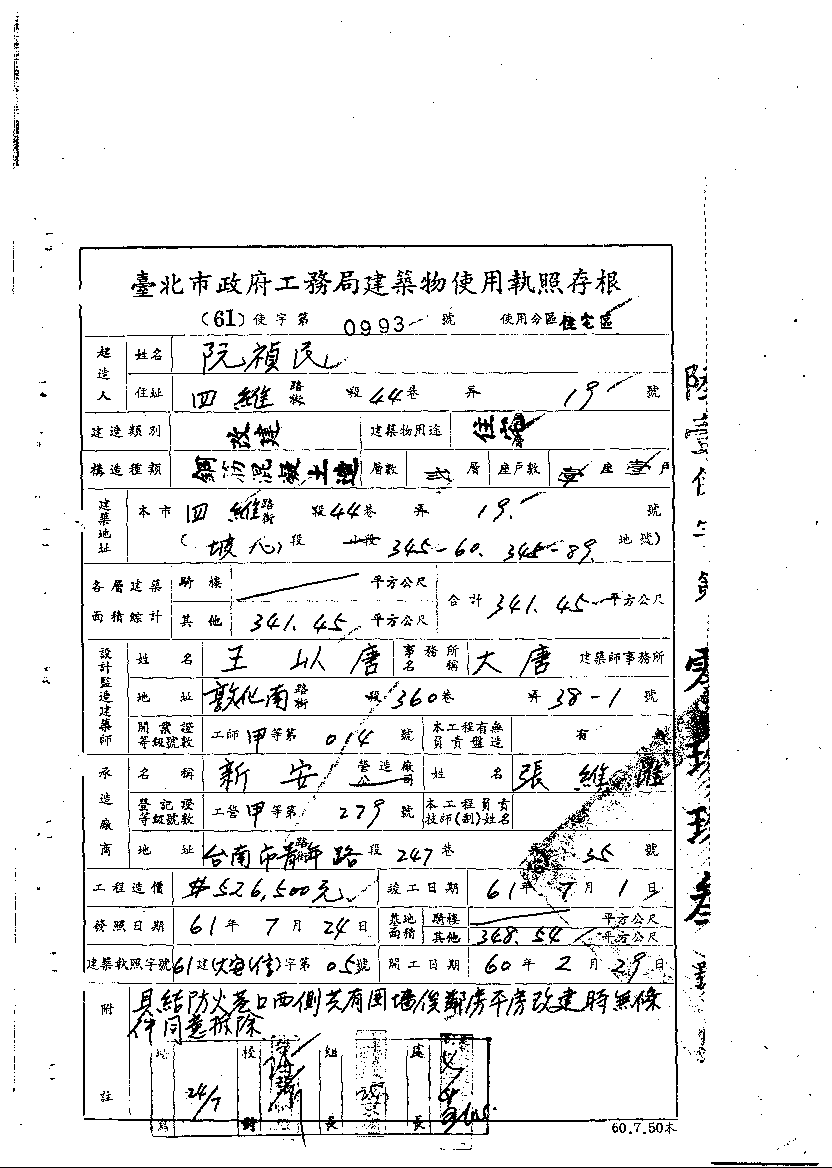 臺北市政府工務局建築物使用執照存根
(61)使字第 0993 號 使用分區 住宅區
起造人 姓名 阮禎民
住址 四維 路街 段 44 巷 弄 19 號
建造類別 改建 建築物用途 住宅
構造種類 鋼筋混凝土造 層數 層 座戶數 壹 座 壹 戶
建築地址 本市 四維 路街 段 44 巷 弄 19 號
(坡心) 段 小段 345-60. 345-89 地號)
各層建築面積綜計 騎樓 平方公尺 合計 341.45 平方公尺
其他 341.45 平方公尺
設計監造建築師 姓名 王以唐 事務所名稱 大唐 建築師事務所
地址 敦化南 路街 段 360 巷 弄 38-1 號
開業證等級號數 工師 甲 等第 014 號 本工程有無負責監造 有
承造廠商 名稱 新安 營造廠公司 姓名 張維
登記證等級號數 工營 甲 等第 279 號 本工程負責技師(副)姓名
地址 台南市青年路 段 247 巷 35 號
工程造價 $526,500元 竣工日期 61 年 7 月 1 日
發照日期 61 年 7 月 24 日 基地面積 騎樓 平方公尺
其他 348.54 平方公尺
建築執照字號 61 建(大安)(信)字第 05 號 開工日期 60 年 2 月 29 日
附註 具結防火巷口西側共有圍墙俟鄰房平房改建時無條
件同意拆除
校對 組長 處長
24/7
60.7.50本